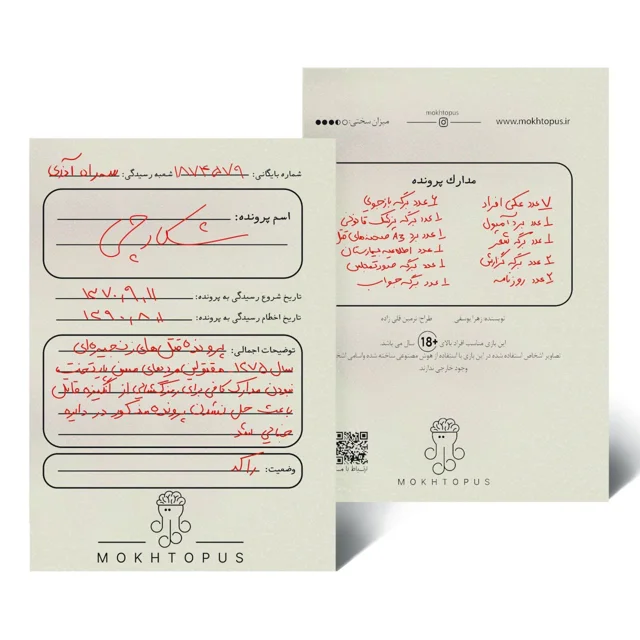 شماره بایگانی: ۱۸۷۴۵۷۹ شعبه رسیدگی: سمراد آذری
اسم پرونده:
شکارچی
تاریخ شروع رسیدگی به پرونده: ۱۳۷۰,۹,۱۱
تاریخ اختام رسیدگی به پرونده: ۱۳۹۰,۸,۱۱
توضیحات اجمالی: پرونده قتل های زنجیره ای
سال ۱۳۷۵ مقتولین مردهای مسن پایتخت
نبودن مدارک کافی برای رمزگشایی از انگیزه قاتل
باعث حل نشدن پرونده مذکور در دایره
جنایی شد
وضعیت: راکد
MOKHTOPUS
میزان سختی:
mokhtopus
www.mokhtopus.ir
مدارک پرونده
۷ عدد عکس افراد
۱ عدد برد آمپول
۱ عدد برگه شعر
۲ عدد برگه گزارش
۲ عدد روزنامه
۴ عدد برگه بازجویی
۱ عدد برگه پزشک قانونی
۱ عدد برد A3 صحنه های قتل
۱ عدد اطلاعیه بیمارستان
۱ عدد برگه صورتمجلس
۱ عدد برگه جواب
نویسنده: زهرا یوسفی طراح: نرمین قلی زاده
این بازی مناسب افراد بالای +18 سال می باشد.
تصاویر اشخاص استفاده شده در این بازی با استفاده از هوش مصنوعی ساخته شده و اسامی
وجود خارجی ندارند
ارتباط با
MOKHTOPUS